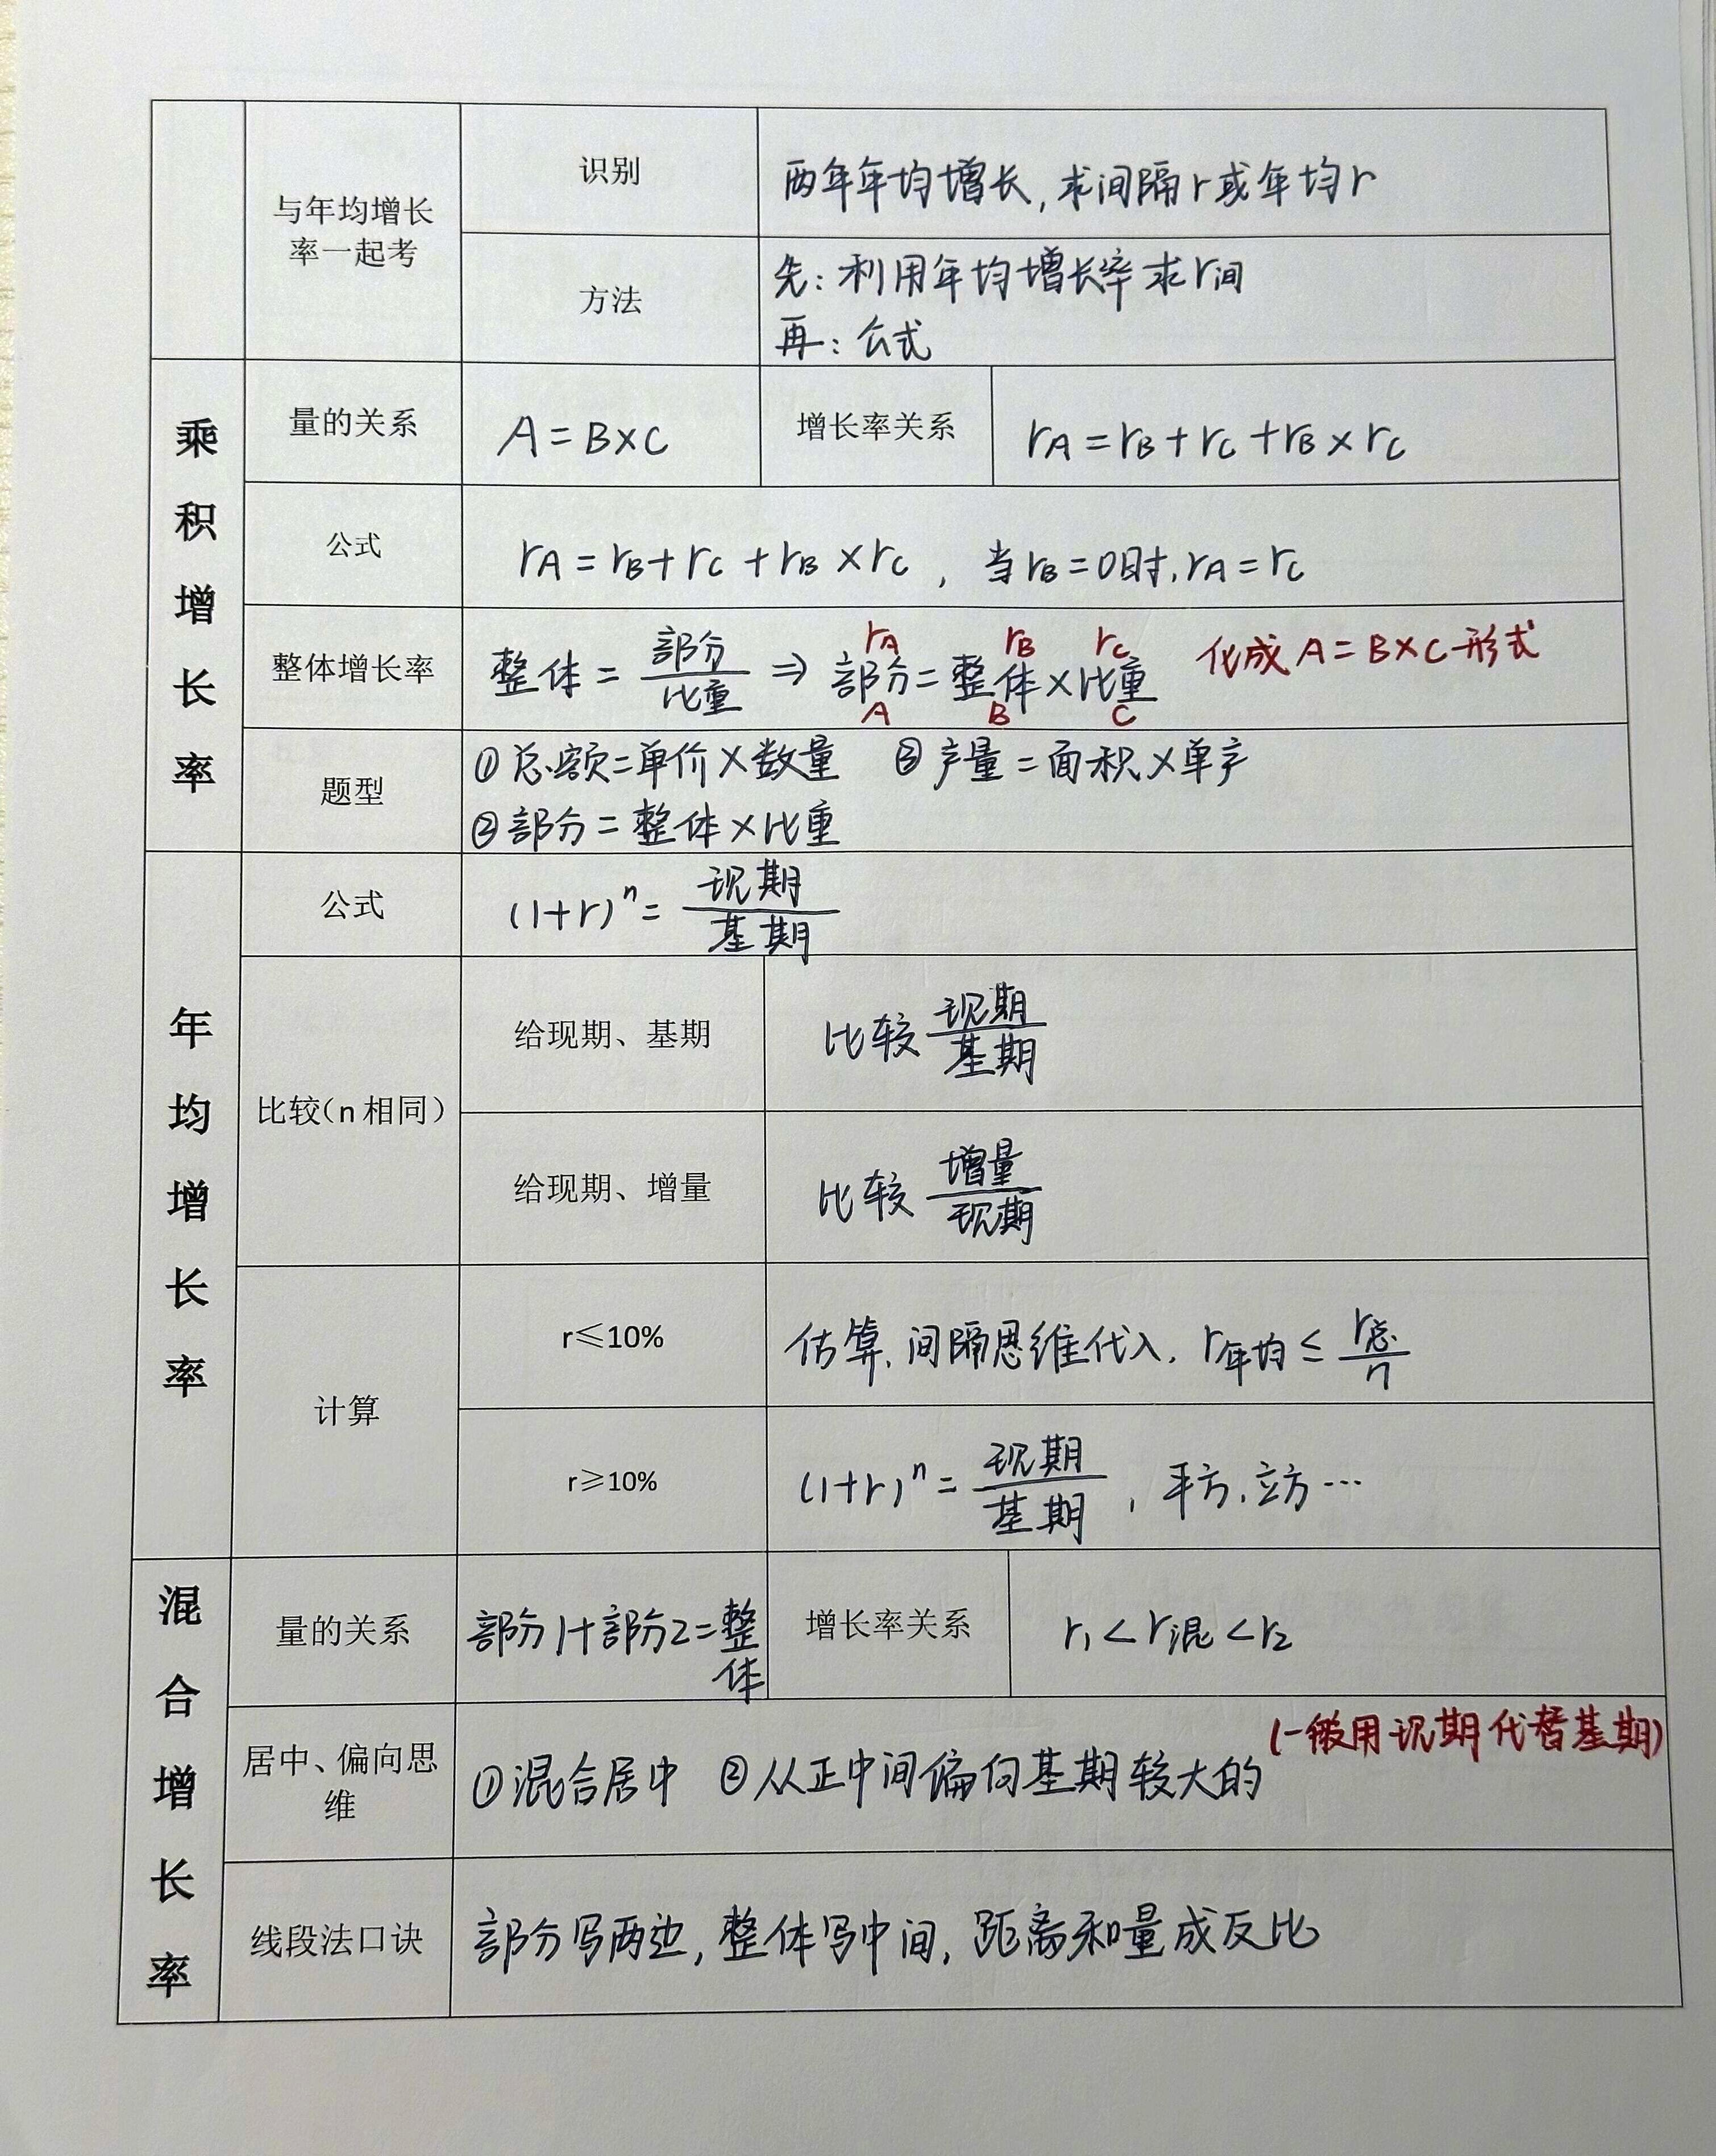 与年均增长
率一起考
识别
两年年均增长,求间隔r或年均r
方法
先:利用年均增长率求r间
再:公式
乘积增长率
量的关系
A=B×C
增长率关系
rA=rB+rC+rB×rC
公式
rA=rB+rC+rB×rC,当rB=0时,rA=rC
整体增长率
rA rB rC
整体=部分/比重⇒部分=整体×比重 化成A=B×C形式
A B C
题型
①总额=单价×数量 ③产量=面积×单产
②部分=整体×比重
年均增长率
公式
(1+r)ⁿ=现期/基期
比较(n相同)
给现期、基期
比较 现期/基期
给现期、增量
比较 增量/现期
计算
r≤10%
估算,间隔思维代入,r年均≤r总/n
r≥10%
(1+r)ⁿ=现期/基期,平方,立方…
混合增长率
量的关系
部分1+部分2=整
体
增长率关系
r₁<r混<r₂
居中、偏向思
维
(一般用现期代替基期)
①混合居中 ②从正中间偏向基期较大的
线段法口诀
部分写两边,整体写中间,距离和量成反比